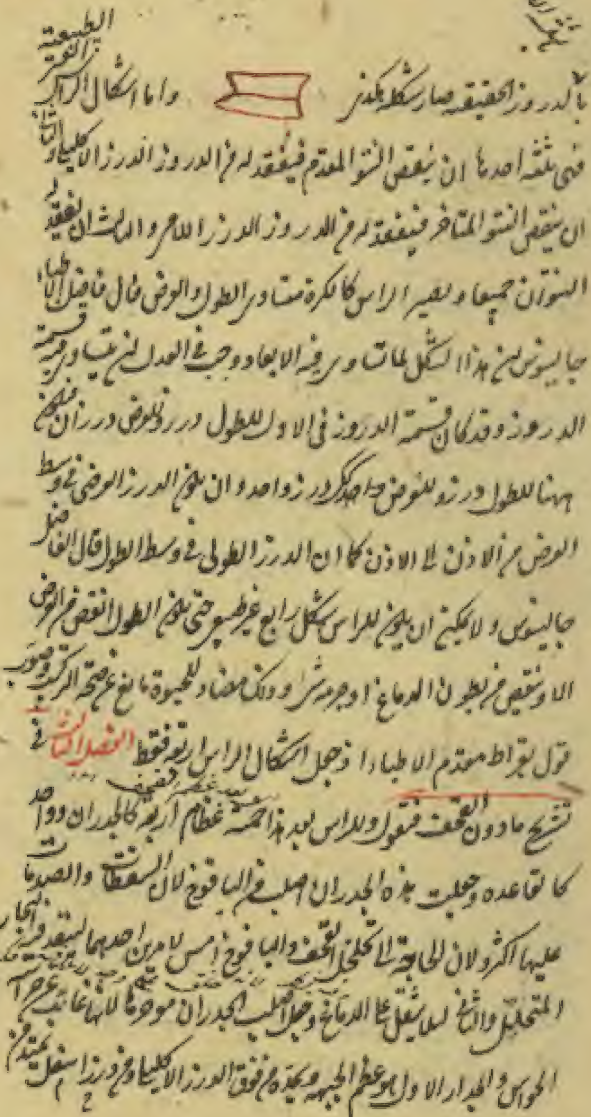 الطبيعية
بالدروز الحقيقية صار شكله هكذى واما اشكال الراس الغير
فهى ثلثة احدها ان ينقص النتو المقدم فيفقد له من الدروز الدرز الاكليلى والثانى
ان ينقص النتو المتاخر فيفقد له من الدروز الدرز اللامى والثالث ان يفقد له
النتوان جميعا ويصير الراس كالكرة متساوى الطول والعرض قال فاضل الاطباء
جالينوس ان هذا الشكل لما تساوى فيه الابعاد وجب فى العدل ان يتساوى فيه قسمة
الدروز وقد كان قسمة الدروز فى الاول للطول درز وللعرض درزان فيكون
ههنا للطول درز وللعرض كذلك درز واحد وان يكون الدرز العرضى فى وسط
العرض من الاذن الى الاذن كما ان الدرز الطولى فى وسط الطول قال الفاضل
جالينوس ولا يمكن ان يكون للراس شكل رابع غير طبيعى حتى يكون الطول انقص من العرض
الا وينقص من بطون الدماغ او جرمه شى وذلك مضاد للحيوة مانع عن صحة التركيب وصوب
قول بقراط مقدم الاطباء اذ جعل اشكال الراس اربعة فقط الفصل الثانى فى
تشريح مادون القحف فنقول وللراس بعد هذا خمسة عظام اربعة كالجدران وواحد
كالقاعدة وجعلت هذه الجدران اصلب من اليافوخ لان السقطات والصدمات
عليها اكثر ولان الحاجة الى تخلخل القحف واليافوخ امس لامرين احدهما لينفذ فيه البخار
المتحلل والثانى لئلا يثقل على الدماغ وجعل اصلب الجدران موخرها لانها غائبة عن حراسة
الحواس والجدار الاول هو عظم الجبهة ويحده من فوق الدرز الاكليلى ومن اسفل درز يمتد من